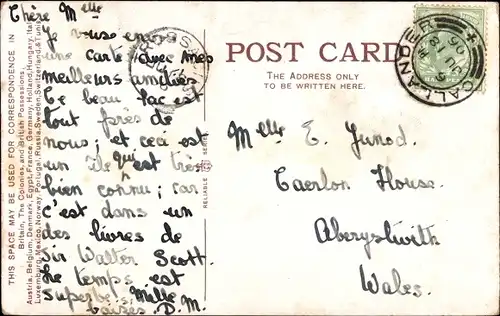 Chère Melle
Je vous envois
une carte avec mes
meilleurs amitiés
Ce beau lac est
tout près de
nous; et ceci est
un île qui est très
bien connu; car
c'est dans un
des livres de
Sir Walter Scott.
Le temps est
superbe. Mille
baises. D. M.
THIS SPACE MAY BE USED FOR CORRESPONDENCE IN
Britain, The Colonies, and British Possessions;
Austria, Belgium, Denmark, Egypt, France, Germany, Holland, Hungary, Italy,
Luxemburg, Mexico, Norway, Portugal, Russia, Sweden, Switzerland, & Tunis
RELIABLE SERIES
POST CARD
THE ADDRESS ONLY
TO BE WRITTEN HERE.
CALLANDER
Melle E. Junod.
Caerlon House.
Aberystwith
Wales.